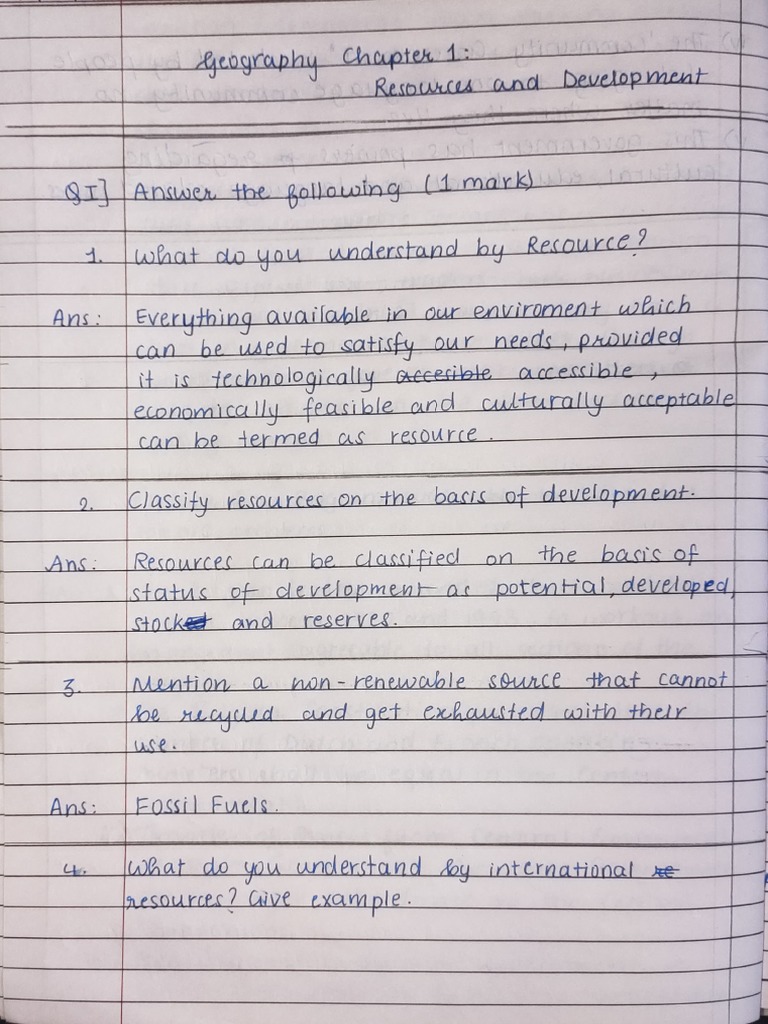 Geography Chapter 1:
Resources and Development
QI] Answer the following (1 mark)
1. What do you understand by Resource?
Ans: Everything available in our enviroment which
can be used to satisfy our needs, provided
it is technologically accesible accessible,
economically feasible and culturally acceptable
can be termed as resource.
2. Classify resources on the basis of development.
Ans: Resources can be classified on the basis of
status of development as potential, developed,
stock and reserves.
3. Mention a non-renewable source that cannot
be recycled and get exhausted with their
use.
Ans: Fossil Fuels.
4. What do you understand by international re
resources? Give example.